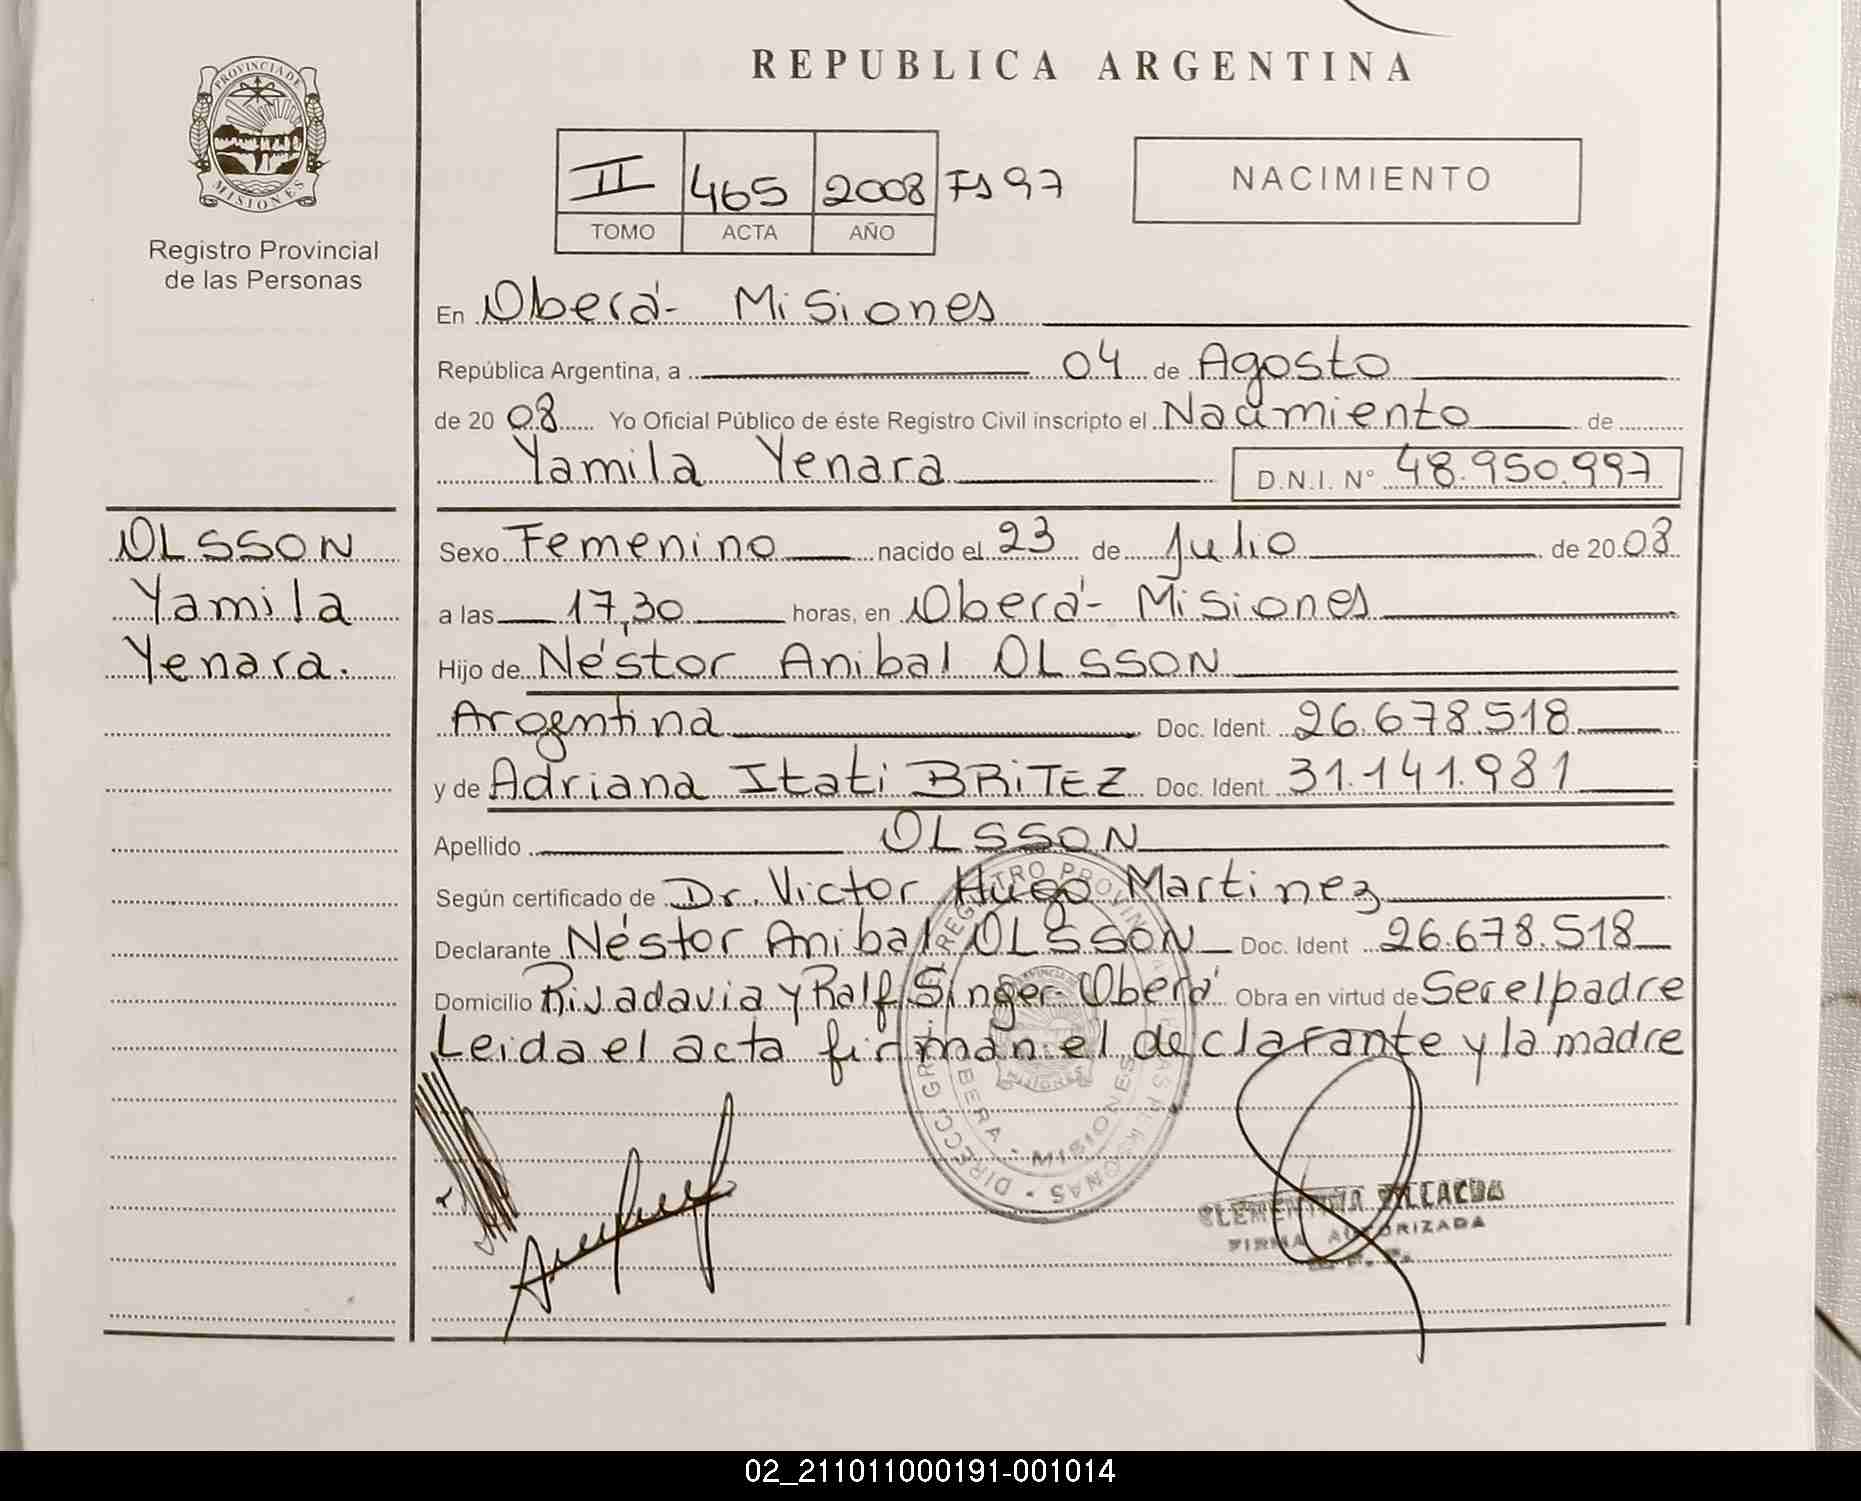 REPUBLICA ARGENTINA
PROVINCIA DE MISIONES
Registro Provincial
de las Personas
II 465 2008 Fs 97
TOMO ACTA AÑO
NACIMIENTO
En Oberá - Misiones
República Argentina, a 04 de Agosto
de 20 08 Yo Oficial Público de éste Registro Civil inscripto el Nacimiento de
Yamila Yenara D.N.I. N° 48.950.997
OLSSON
Yamila
Yenara.
Sexo Femenino nacido el 23 de Julio de 20 08
a las 17,30 horas, en Oberá - Misiones
Hijo de Néstor Anibal OLSSON
Argentina Doc. Ident. 26.678.518
y de Adriana Itati BRiTEZ Doc. Ident. 31.141.981
Apellido OLSSON
Según certificado de Dr. Victor Hugo Martinez
Declarante Néstor Anibal OLSSON Doc. Ident 26.678.518
Domicilio Rivadavia y Ralf Singer - Oberá Obra en virtud de Ser el padre
Leida el acta firman el declarante y la madre
DIRECC. GRAL. REGISTRO PROVINCIAL DE LAS PERSONAS
OBERA - MISIONES
FIRMA AUTORIZADA
02_211011000191-001014